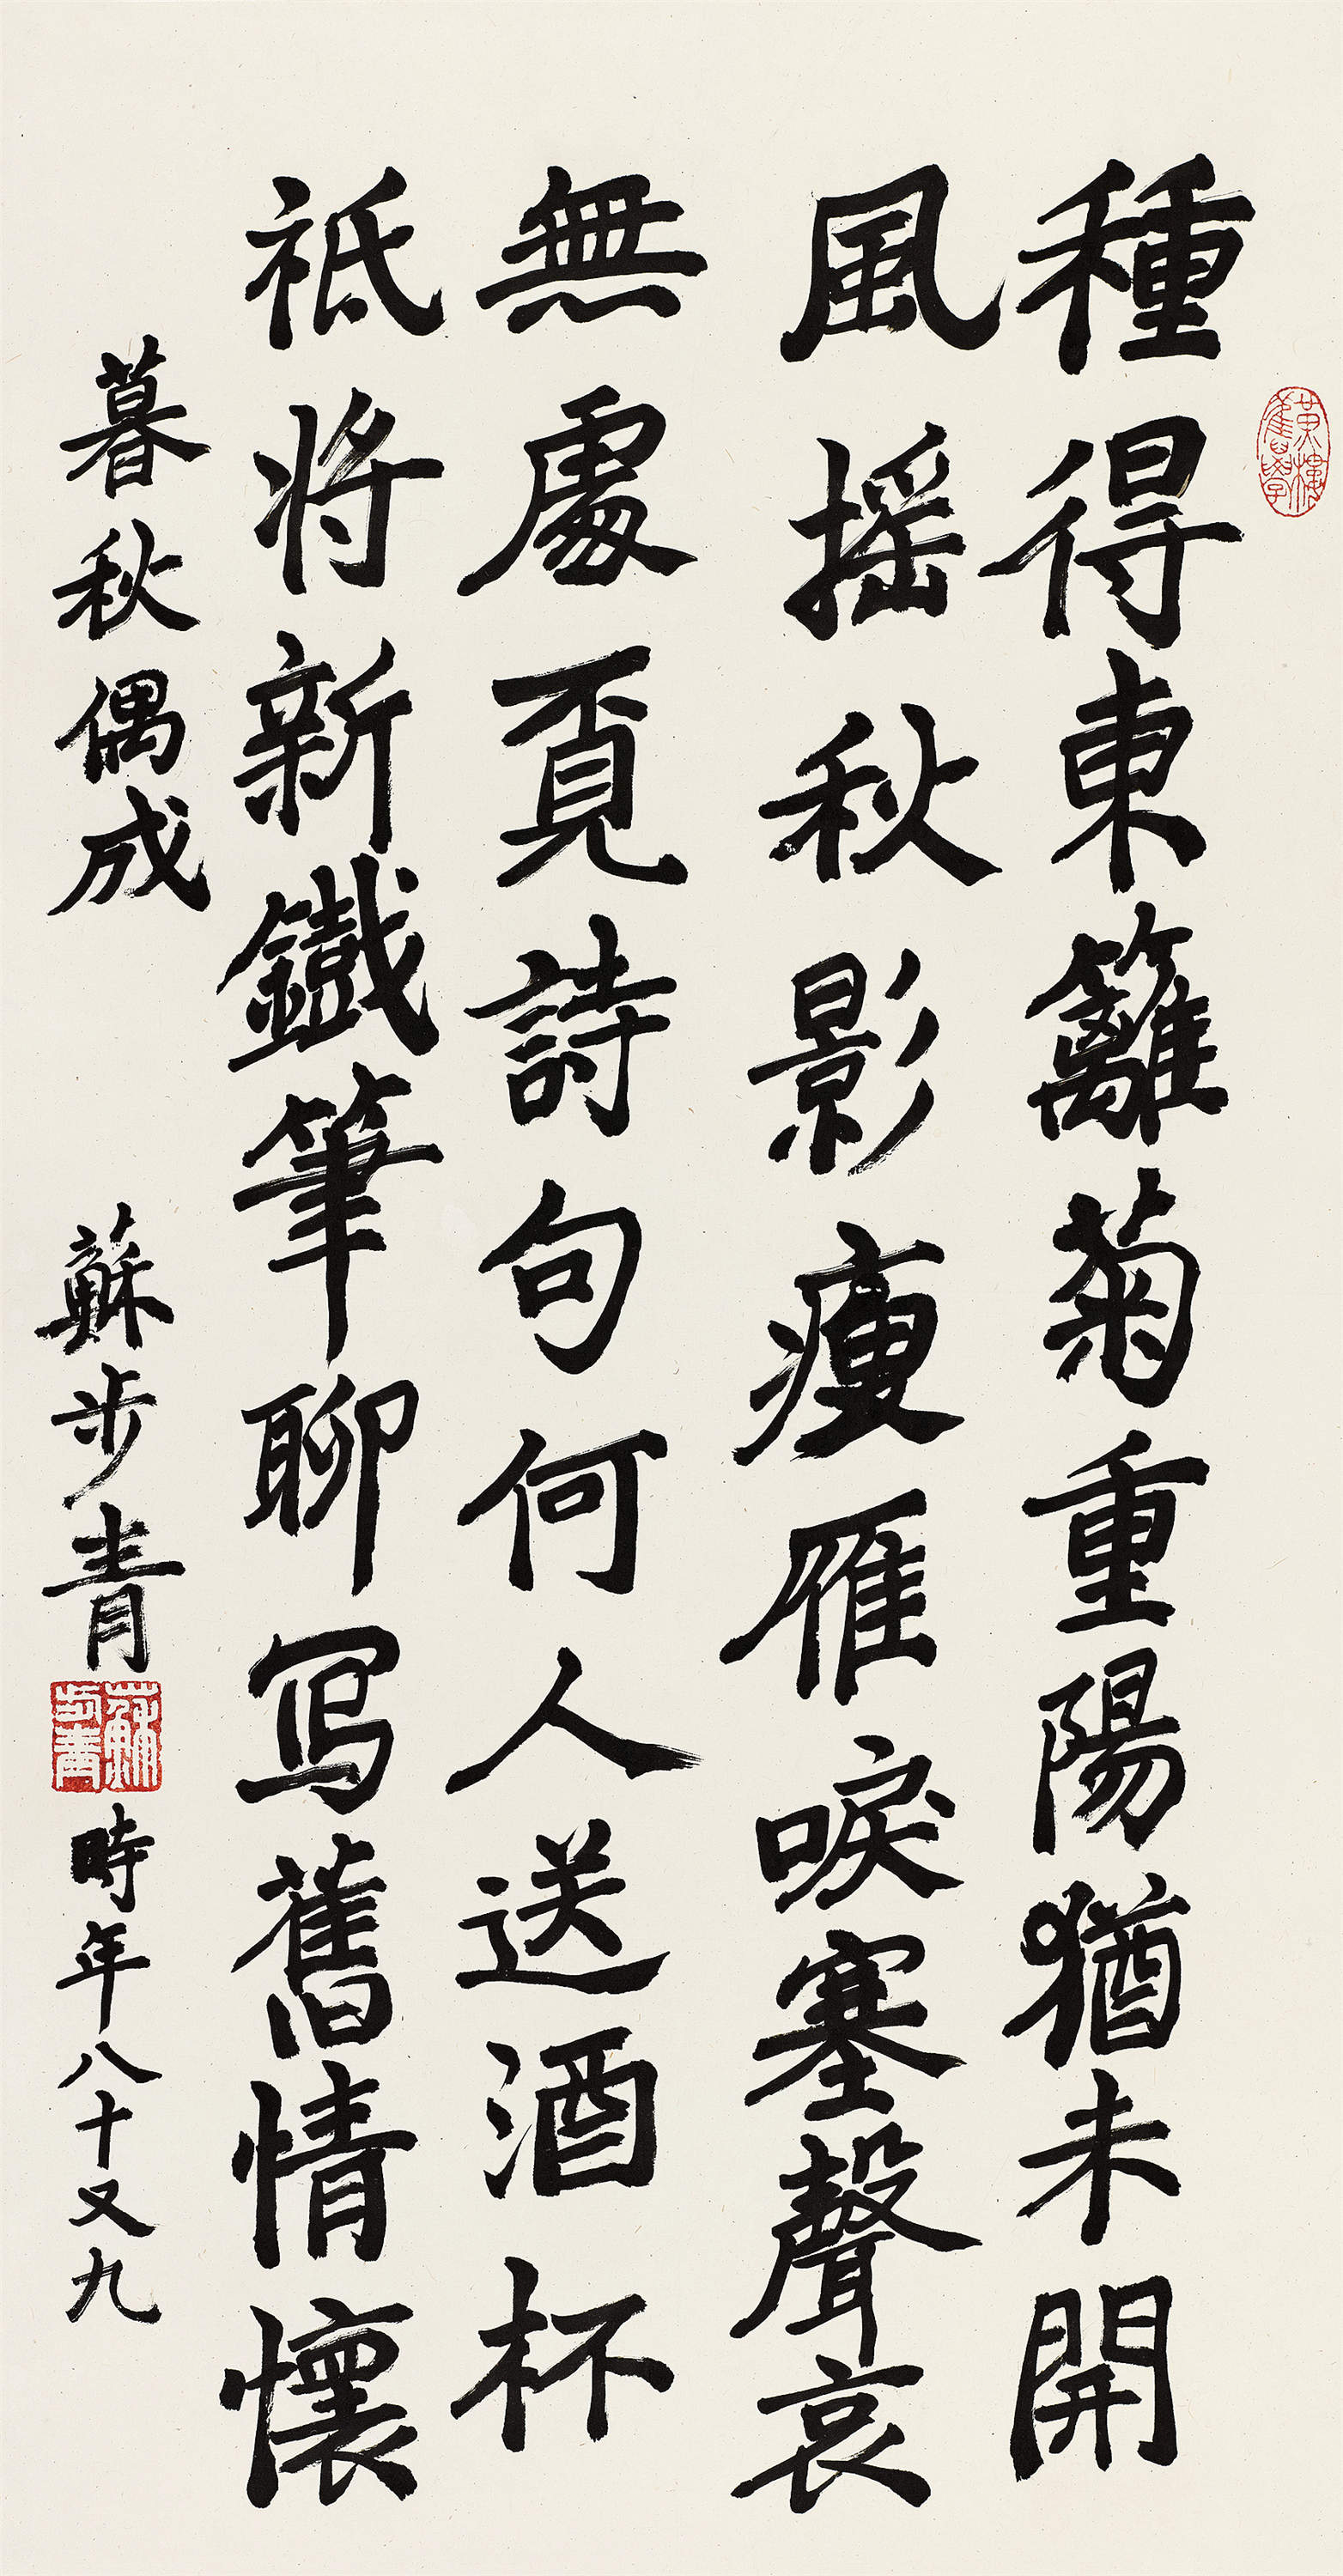 種得東籬菊重陽猶未開
風摇秋影瘦雁唳塞聲哀
無處覓詩句何人送酒杯
祗将新鐵筆聊写舊情懷
暮秋偶成 蘇步青 時年八十又九
蘇步青